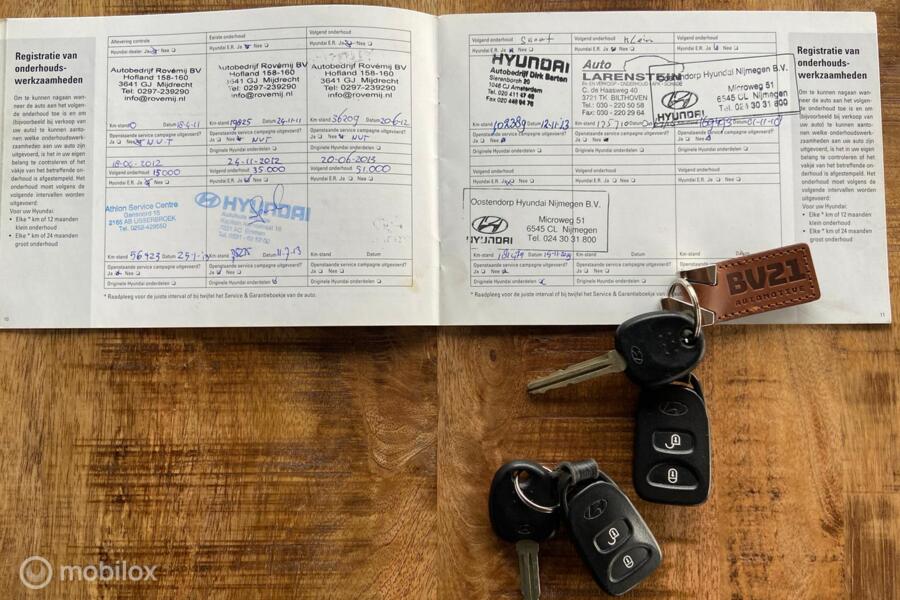 Registratie van
onderhouds-
werkzaamheden
Om te kunnen nagaan wan-
neer de auto aan het volgen-
de onderhoud toe is en om
(bijvoorbeeld bij verkoop van
uw auto) te kunnen aanto-
nen welke onderhoudswerk-
zaamheden aan uw auto zijn
uitgevoerd, is het in uw eigen
belang te controleren of het
vakje van het betreffende on-
derhoud is afgestempeld. Het
onderhoud moet volgens de
volgende intervallen worden
uitgevoerd:
Voor uw Hyundai:
• Elke * km of 12 maanden
klein onderhoud
• Elke * km of 24 maanden
groot onderhoud
10
Aflevering controle
Hyundai dealer Ja Nee
Autobedrijf Rovémij BV
Hofland 158-160
3641 GJ Mijdrecht
Tel: 0297-239290
info@rovemij.nl
Km-stand 0 Datum 18-4-11
Openstaande service campagne uitgevoerd?
Ja Nee NVT
18-04-2012
Volgend onderhoud 15000
Hyundai E.R. Ja Nee
Athlon Service Centre
2165 AB LISSERBROEK
Tel. 0252-429550
Km-stand 56923 Datum
Openstaande service campagne uitgevoerd?
Ja Nee
Originele Hyundai onderdelen
Eerste onderhoud
Hyundai E.R. Ja Nee
Autobedrijf Rovémij BV
Hofland 158-160
3641 GJ Mijdrecht
Tel: 0297-239290
info@rovemij.nl
Km-stand 19825 Datum 24-11-11
Openstaande service campagne uitgevoerd?
Ja Nee NVT
Originele Hyundai onderdelen
24-11-2012
Volgend onderhoud 35.000
Hyundai E.R. Ja Nee
HYUNDAI
Km-stand Datum 11.7.13
Openstaande service campagne uitgevoerd?
Ja Nee
Originele Hyundai onderdelen
Volgend onderhoud
Hyundai E.R. Ja Nee
Autobedrijf Rovémij BV
Hofland 158-160
3641 GJ Mijdrecht
Tel: 0297-239290
info@rovemij.nl
Km-stand 36209 Datum 20-6-12
Openstaande service campagne uitgevoerd?
Ja Nee NVT
Originele Hyundai onderdelen
20-06-2013
Volgend onderhoud 51.000
Hyundai E.R. Ja Nee
Km-stand Datum
Openstaande service campagne uitgevoerd?
Ja Nee
Originele Hyundai onderdelen
* Raadpleeg voor de juiste interval of bij twijfel het Service & Garantieboekje van de auto.
Volgend onderhoud Groot
Hyundai E.R. Ja Nee
HYUNDAI
Autobedrijf Dirk Barten
1046 CJ Amsterdam
Km-stand Datum
Openstaande service campagne uitgevoerd?
Ja Nee
Originele Hyundai onderdelen
Volgend onderhoud
Hyundai E.R. Ja Nee
Oostendorp Hyundai Nijmegen B.V.
Microweg 51
6545 CL Nijmegen
Tel. 024 30 31 800
HYUNDAI
Km-stand Datum
Openstaande service campagne uitgevoerd?
Ja Nee
Originele Hyundai onderdelen
Volgend onderhoud Klein
Hyundai E.R. Ja Nee
Auto
LARENSTEIN
C. de Haasweg 40
3721 TK BILTHOVEN
Tel.: 030 - 220 50 58
Fax: 030 - 229 29 64
Km-stand
Openstaande service campagne uitgevoerd?
Ja Nee
Originele Hyundai onderdelen
Volgend onderhoud
Hyundai E.R. Ja Nee
Km-stand Datum
Openstaande service campagne uitgevoerd?
Ja Nee
Originele Hyundai onderdelen
Volgend onderhoud
Hyundai E.R. Ja Nee
Hyundai Nijmegen B.V.
Microweg 51
6545 CL Nijmegen
Tel. 024 30 31 800
HYUNDAI
Openstaande service campagne uitgevoerd?
Ja Nee
Originele Hyundai onderdelen
Volgend onderhoud
Hyundai E.R. Ja Nee
Km-stand Datum
Openstaande service campagne uitgevoerd?
* Raadpleeg voor de juiste interval of bij twijfel het Service & Garantieboekje van
Registratie van
onderhouds-
werkzaamheden
Om te kunnen nagaan wan-
neer de auto aan het volgen-
de onderhoud toe is en om
(bijvoorbeeld bij verkoop van
uw auto) te kunnen aanto-
nen welke onderhoudswerk-
zaamheden aan uw auto zijn
uitgevoerd, is het in uw eigen
belang te controleren of het
vakje van het betreffende on-
derhoud is afgestempeld. Het
onderhoud moet volgens de
volgende intervallen worden
uitgevoerd:
Voor uw Hyundai:
• Elke * km of 12 maanden
klein onderhoud
• Elke * km of 24 maanden
groot onderhoud
11
BV21
AUTOMOTIVE
mobilox